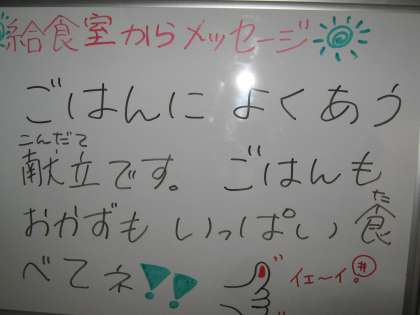 給食室からメッセージ
ごはんによくあう
こんだて
献立です。 ごはんも
た
おかずも いっぱい食
べてネ!!
イェ〜イ。#